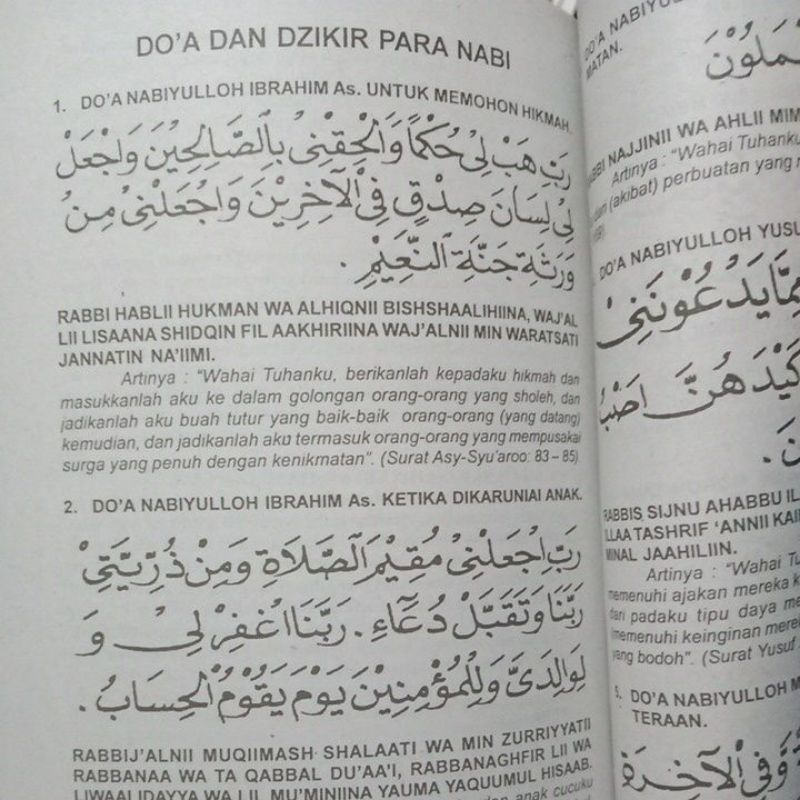 DO'A DAN DZIKIR PARA NABI
1. DO'A NABIYULLOH IBRAHIM As. UNTUK MEMOHON HIKMAH.
رَبِّ هَبْ لِىْ حُكْمًا وَّاَلْحِقْنِىْ بِالصَّالِحِيْنَ وَاجْعَلْ
لِىْ لِسَانَ صِدْقٍ فِى الْآخِرِيْنَ وَاجْعَلْنِىْ مِنْ
وَرَثَةِ جَنَّةِ النَّعِيْمِ.
RABBI HABLII HUKMAN WA ALHIQNII BISHSHAALIHIINA, WAJ'AL
LII LISAANA SHIDQIN FIL AAKHIRIINA WAJ'ALNII MIN WARATSATI
JANNATIN NA'IIMI.
Artinya : "Wahai Tuhanku, berikanlah kepadaku hikmah dan
masukkanlah aku ke dalam golongan orang-orang yang sholeh, dan
jadikanlah aku buah tutur yang baik-baik orang-orang (yang datang)
kemudian, dan jadikanlah aku termasuk orang-orang yang mempusakai
surga yang penuh dengan kenikmatan". (Surat Asy-Syu'aroo: 83 – 85)
2. DO'A NABIYULLOH IBRAHIM As. KETIKA DIKARUNIAI ANAK.
رَبِّ اجْعَلْنِىْ مُقِيْمَ الصَّلَاةِ وَمِنْ ذُرِّيَّتِىْ
رَبَّنَا وَتَقَبَّلْ دُعَآءِ. رَبَّنَا اغْفِرْ لِىْ وَ
لِوَالِدَىَّ وَلِلْمُؤْمِنِيْنَ يَوْمَ يَقُوْمُ الْحِسَابُ.
RABBIJ'ALNII MUQIIMASH SHALAATI WA MIN ZURRIYYATII
RABBANAA WA TA QABBAL DU'AA'I, RABBANAGHFIR LII WA
LIWAALIDAYYA WA LIL MU'MINIINA YAUMA YAQUUMUL HISAAB.
dan anak cucuku
DO'A NABIYULLOH
MATAN.
NAJJINII WA AHLII
Artinya : "Wahai Tuhanku
(akibat) perbuatan yang
DO'A NABIYULLOH YUSU
مِمَّا يَدْعُوْنَنِىْ
كَيْدَهُنَّ اَصْبُ
RABBIS SIJNU AHABBU IL
ILLAA TASHRIF 'ANNII KAI
MINAL JAAHILIIN.
Artinya : "Wahai Tu
memenuhi ajakan mereka k
dari padaku tipu daya me
(memenuhi keinginan mere
yang bodoh". (Surat Yusuf
DO'A NABIYULLOH M
TERAAN.
وَّفِى الْآخِرَةِ